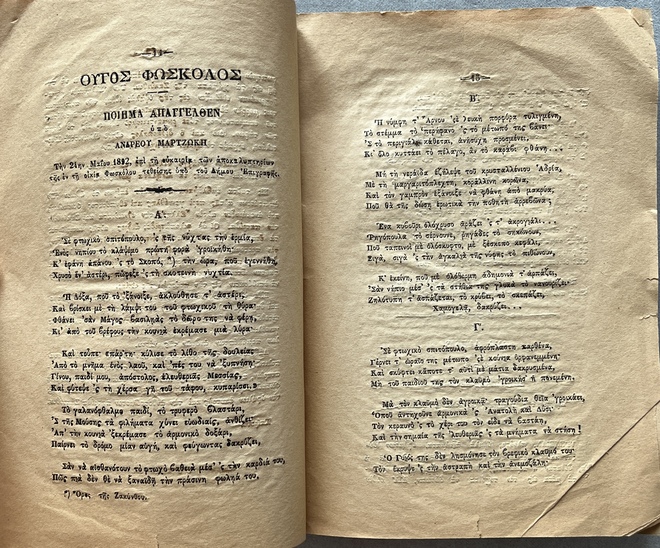 14
ΟΥΓΟΣ ΦΩΣΚΟΛΟΣ
ΠΟΙΗΜΑ ΑΠΑΓΓΕΛΘΕΝ
ὑπὸ
ΑΝΔΡΕΟΥ ΜΑΡΤΖΩΚΗ
Τὴν 24ην Μαΐου 1892, ἐπὶ τῇ εὐκαιρίᾳ τῶν ἀποκαλυπτηρίων
τῆς ἐν τῇ οἰκίᾳ Φωσκόλου τεθείσης ὑπὸ τοῦ Δήμου Ἐπιγραφῆς.
Α'.
Σὲ φτωχικὸ σπιτόπουλο, 'ς τῆς νύχτας τὴν ἐρμία,
Ἑνὸς νηπίου τὸ κλάψιμο πρώτη φορὰ γροικήθη·
Κ' ἐφάνη ἀπάνου 'ς τὸ Σκοπό, *) τὴν ὥρα, ποῦ ἐγεννήθη,
Χρυσὸ ἕν' ἀστέρι, πὤφεξε 'ς τὴ σκοτεινὴ νυχτία.
Ἡ Δόξα, ποῦ τὸ ἔξανοιξε, ἀκλούθησε τ' ἀστέρι,
Καὶ βρίσκει μὲ τὴ λάμψι του τοῦ φτωχικοῦ τὴ θύρα·
Φθάνει 'σὰν Μάγος βασιληᾶς τὸ δῶρο της νὰ φέρῃ,
Κι' ἀπὸ τοῦ βρέφους τὴν κουνιὰ ἐκρέμασε μιὰ λύρα·
Καὶ τοῦπε· ἐπάρτη· κύλισε τὸ λίθο τῆς δουλείας
Ἀπὸ τὸ μνῆμα ἑνὸς λαοῦ, καὶ 'πές του νὰ ἐξυπνήσῃ·
Γίνου, παιδί μου, ἀπόστολος, ἐλευθεριᾶς Μεσσίας,
Καὶ φύτεψε 'ς τὴ χέρσα γῆ τοῦ τάφου, κυπαρίσσι.»
Τὸ γαλανόφθαλμο παιδί, τὸ τρυφερὸ βλαστάρι,
'Σ τῆς Μούσης τὰ φιλήματα χύνει εὐωδιαίς, ἀνθίζει·
Ἀπ' τὴν κουνιὰ ξεκρέμασε τὸ ἁρμονικὸ δοξάρι,
Παίρνει τὸ δρόμο μίαν αὐγή, καὶ φεύγωντας δακρύζει,
Σὰν νὰ αἰσθανότουν τὸ φτωχὸ βαθειὰ μέσ' 'ς τὴν καρδιά του,
Πῶς πιὰ δὲν θὲ νὰ ξαναϊδῇ τὴν πράσινη φωληά του,
*) Ὄρος τῆς Ζακύνθου.
15
Β'.
Ἡ νύμφη τ' Ἄρνου 'σὲ λευκὴ πορφύρα τυλιγμένη,
Τὸ στέμμα τὸ 'περήφανο 'ς τὸ μέτωπό της βάνει·
'Σ τὸ περιγιάλι κάθεται, ἀνήσυχη προσμένει,
Κι' ὅλο κυττάει τὸ πέλαγο, ἂν τὸ καράβι φθάνῃ...
Μὴ τὴ νεράϊδα ἐζήλεψε τοῦ κρυσταλλένιου Ἀδρία,
Μὲ τὴ μαργαριτόπλεχτη, κοράλλινη κορῶνα,
Καὶ τὸν γαμπρὸν ἐξάνοιξε νὰ φθάνῃ ἀπὸ μακρυά,
Ποῦ θὰ τῆς δώσῃ ἐρωτικὰ τὴν ποθητὴ ἀρρεβῶνα;
Ἕνα κιβοῦρι ὁλόχρυσο ἀράζει 'ς τ' ἀκρογιάλι...
Ῥηγόπουλα τὸ σέρνουνε, ῥηγάδες τὸ σηκώνουν,
Καὶ ταπεινοὶ μὲ ὁλόσκυφτο, μὲ ξέσκεπο κεφάλι,
Σιγά, σιγὰ 'ς τὴν ἀγκαλιὰ τῆς νύφης τὸ πιθώνουν,
Κ' ἐκείνη, ποῦ μὲ ὁλόθερμη ἀδημονιὰ τ' ἁρπάζει,
Σὰν νήπιο μέσ' 'ς τὰ στήθια της γλυκὰ τὸ νανουρίζει·
Ζηλότυπη τ' ἀσπάζεται, τὸ κρύβει, τὸ σκεπάζει,
Χαμογελᾷ, δακρύζει...
Γ.
Σὲ φτωχικὸ σπιτόπουλο, ἀφρόπλαστη παρθένα,
Γέρνει τ' ὡραῖο της μέτωπο 'σὲ κούνια ὀρφανεμμένη·
Καὶ σκύφτει κάποτε τ' αὐτὶ μὲ μάτια δακρυσμένα,
Μὴ τοῦ παιδιοῦ της τὸν κλαυμὸ γροικήσῃ ἡ πονεμένη.
Μὰ τὸν κλαυμὸ δὲν ἀγροικᾷ· τραγούδια θεῖα γροικάει,
Ὁποῦ ἀντηχοῦνε ἁρμονικὰ 'ς Ἀνατολὴ καὶ Δύσι·
Τὸν κεραυνὸ 'ς τὸ χέρι του τὸν εἶδε νὰ βαστάῃ,
Καὶ τὴν σημαία τῆς λευθεριᾶς 'ς τὰ μνήματα νὰ στήσῃ!
Ὁ Γυιός της δὲν λησμόνησε τὸν βρεφικὸ κλαυμό του·
Τὸν ἔκρυψε 'ς τὴ ἀστραπὴ καὶ τὴν ἀνεμοζάλη·